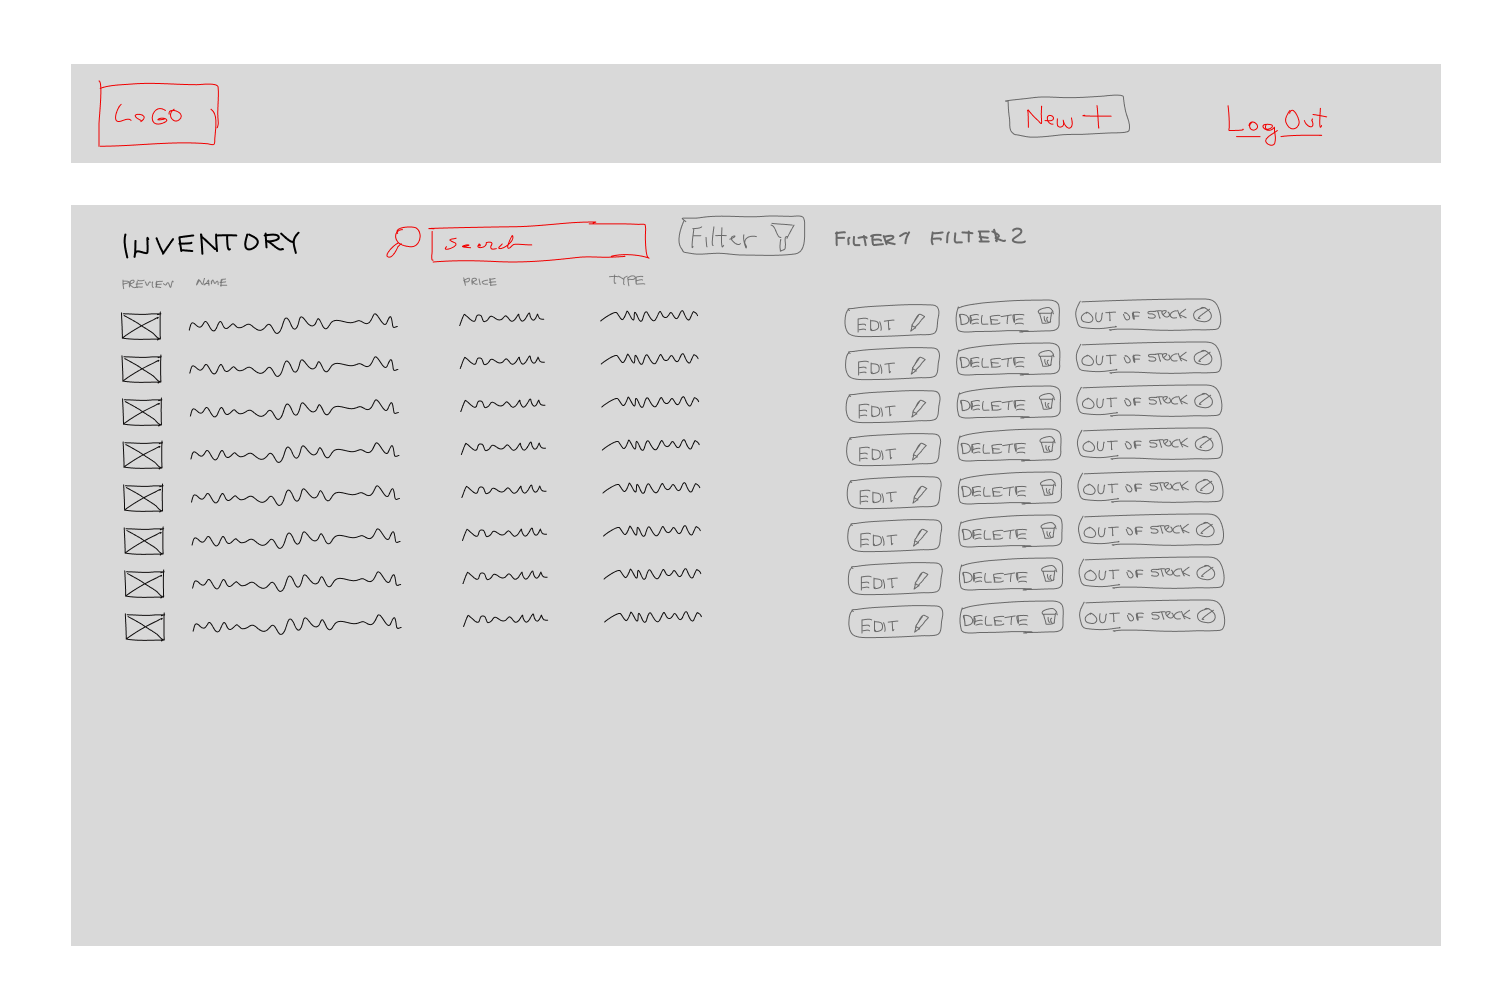 LOGO New + Log Out
INVENTORY Search Filter FILTER1 FILTER2
PREVIEW NAME PRICE TYPE
EDIT DELETE OUT OF STOCK
EDIT DELETE OUT OF STOCK
EDIT DELETE OUT OF STOCK
EDIT DELETE OUT OF STOCK
EDIT DELETE OUT OF STOCK
EDIT DELETE OUT OF STOCK
EDIT DELETE OUT OF STOCK
EDIT DELETE OUT OF STOCK